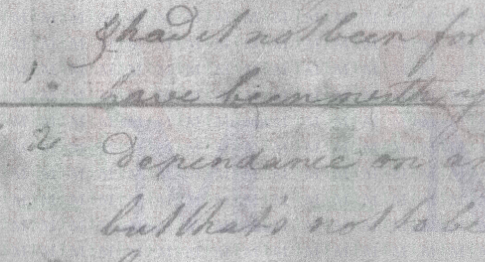 & had it not been for
have been worth
dependance on a
but that's not to be